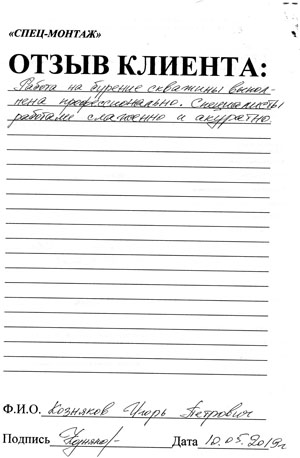 «СПЕЦ-МОНТАЖ»
ОТЗЫВ КЛИЕНТА:
Работа на бурение скважины выпол-
нена профессионально. Специалисты
работали слаженно и акуратно.
Ф.И.О. Козняков Игорь Петрович
Подпись Дата 10.05.2019г